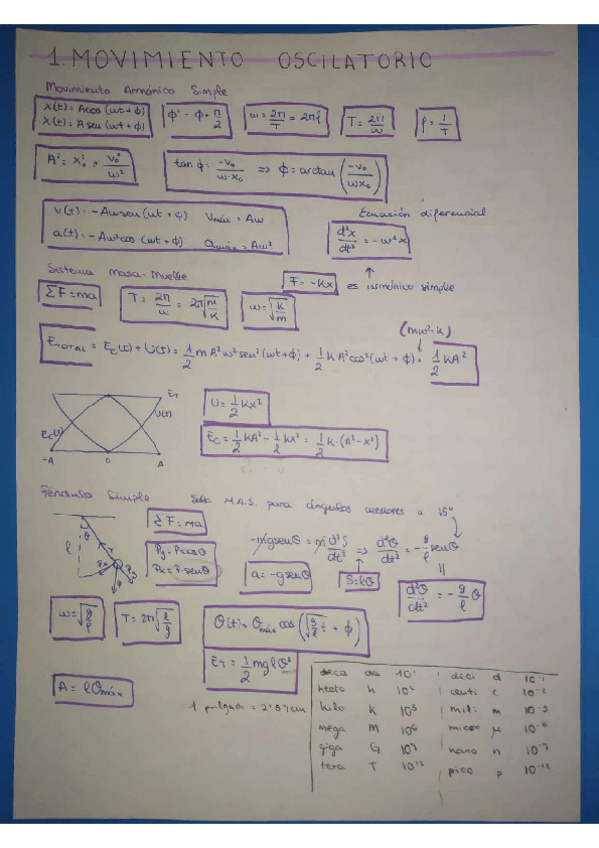 1. MOVIMIENTO OSCILATORIO
Movimiento Armónico Simple
x(t) = A cos (ωt + ϕ)
x(t) = A sen (ωt + ϕ)
ϕ' = ϕ + π/2
ω = 2π/T = 2πf
T = 2π/ω
f = 1/T
A² = x₀² + v₀²/ω²
tan ϕ = -v₀/(ω x₀) ⇒ ϕ = arctan (-v₀/(ωx₀))
v(t) = -Aω sen (ωt + ϕ) vmáx = Aω
a(t) = -Aω² cos (ωt + ϕ) amáx = Aω²
Ecuación diferencial
d²x/dt² = -ω²x
Sistema Masa-Muelle
F = -Kx es armónico simple
ΣF = ma
T = 2π/ω = 2π√(m/K)
ω = √(k/m)
(mω² = k)
ETOTAL = Ec(t) + U(t) = 1/2 m A²ω² sen² (ωt + ϕ) + 1/2 K A² cos² (ωt + ϕ) = 1/2 KA²
ET
U(t)
Ec(t)
-A 0 A
U = 1/2 Kx²
Ec = 1/2 KA² - 1/2 Kx² = 1/2 K·(A² - x²)
Péndulo Simple Solo M.A.S. para ángulos menores a 15º
ΣF = ma
Py = P cos θ
Px = P · sen θ
-mg sen θ = m d²S/dt² ⇒ d²θ/dt² = -g/l sen θ
a = -g sen θ
S = lθ
d²θ/dt² = -g/l θ
ω = √(g/l)
T = 2π√(l/g)
θ(t) = θmáx cos (√(g/l) t + ϕ)
ET = 1/2 mglθ²
A = lθmáx
1 pulgada = 2'54 cm
deca da 10¹ deci d 10⁻¹
hecto h 10² centi c 10⁻²
kilo K 10³ mili m 10⁻³
mega M 10⁶ micro μ 10⁻⁶
giga G 10⁹ nano n 10⁻⁹
tera T 10¹² pico p 10⁻¹²